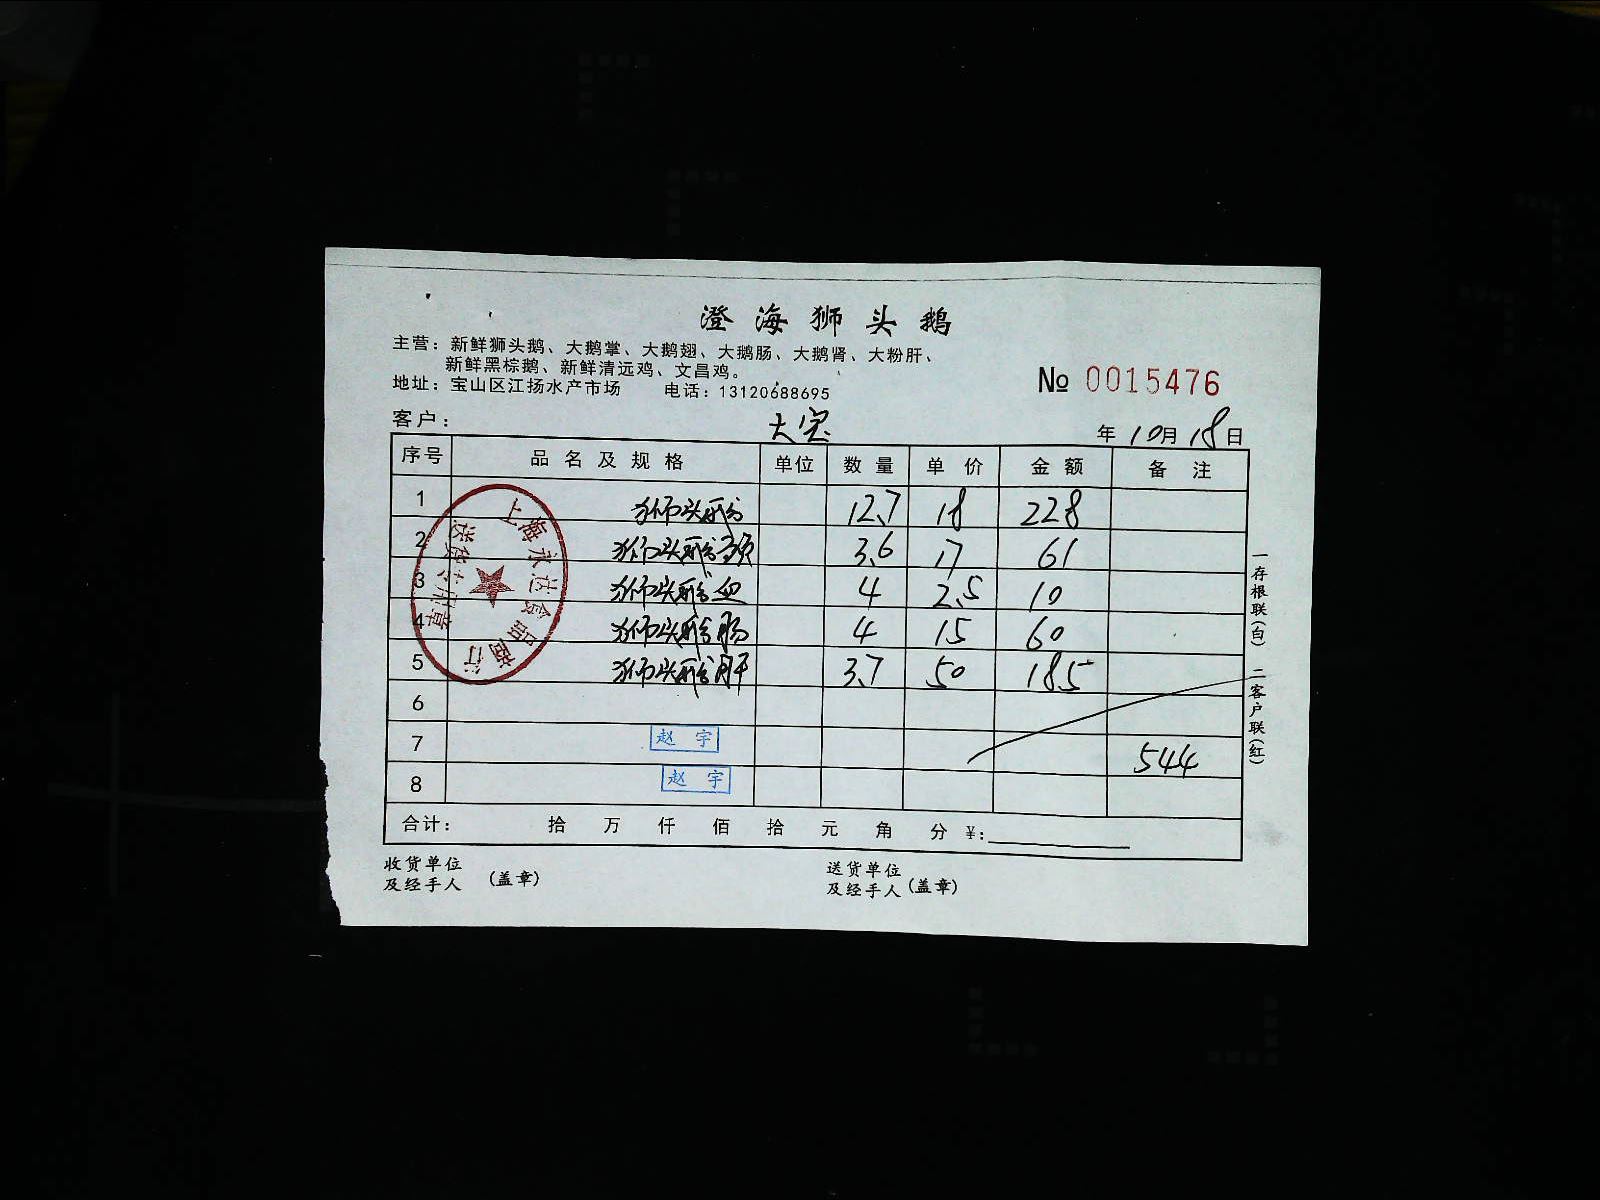 澄海狮头鹅
主营：新鲜狮头鹅、大鹅掌、大鹅翅、大鹅肠、大鹅肾、大粉肝、
新鲜黑棕鹅、新鲜清远鸡、文昌鸡。
地址：宝山区江扬水产市场 电话：13120688695
№ 0015476
客户： 大宝 年 10月 18日
序号 品名及规格 单位 数量 单价 金额 备注
1 狮头鹅 12.7 18 228
2 狮头鹅头 3.6 17 61
3 狮头鹅血 4 2.5 10
4 狮头鹅肠 4 15 60
5 狮头鹅肝 3.7 50 185
6
7 赵宇 544
8 赵宇
合计： 拾 万 仟 佰 拾 元 角 分 ¥：
收货单位
及经手人 (盖章)
送货单位
及经手人 (盖章)
一存根联(白) 二客户联(红)
上海永达食品商行
送货专用章